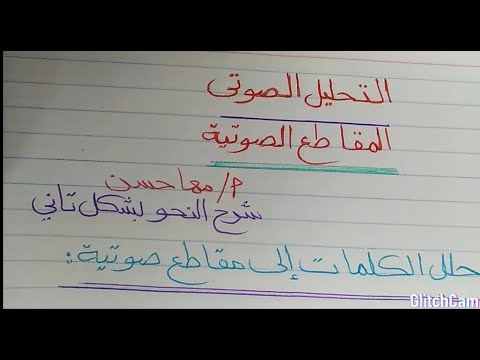 التحليل الصوتى
المقاطع الصوتية
م/ مها حسن
شرح النحو بشكل تاني
حلل الكلمات إلى مقاطع صوتية:
GlitchCam